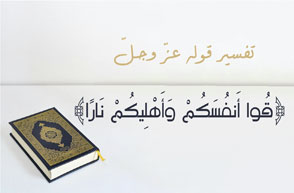 تفسير قوله عزّ وجلّ
﴿قُوا أَنفُسَكُمْ وَأَهْلِيكُمْ نَارًا﴾